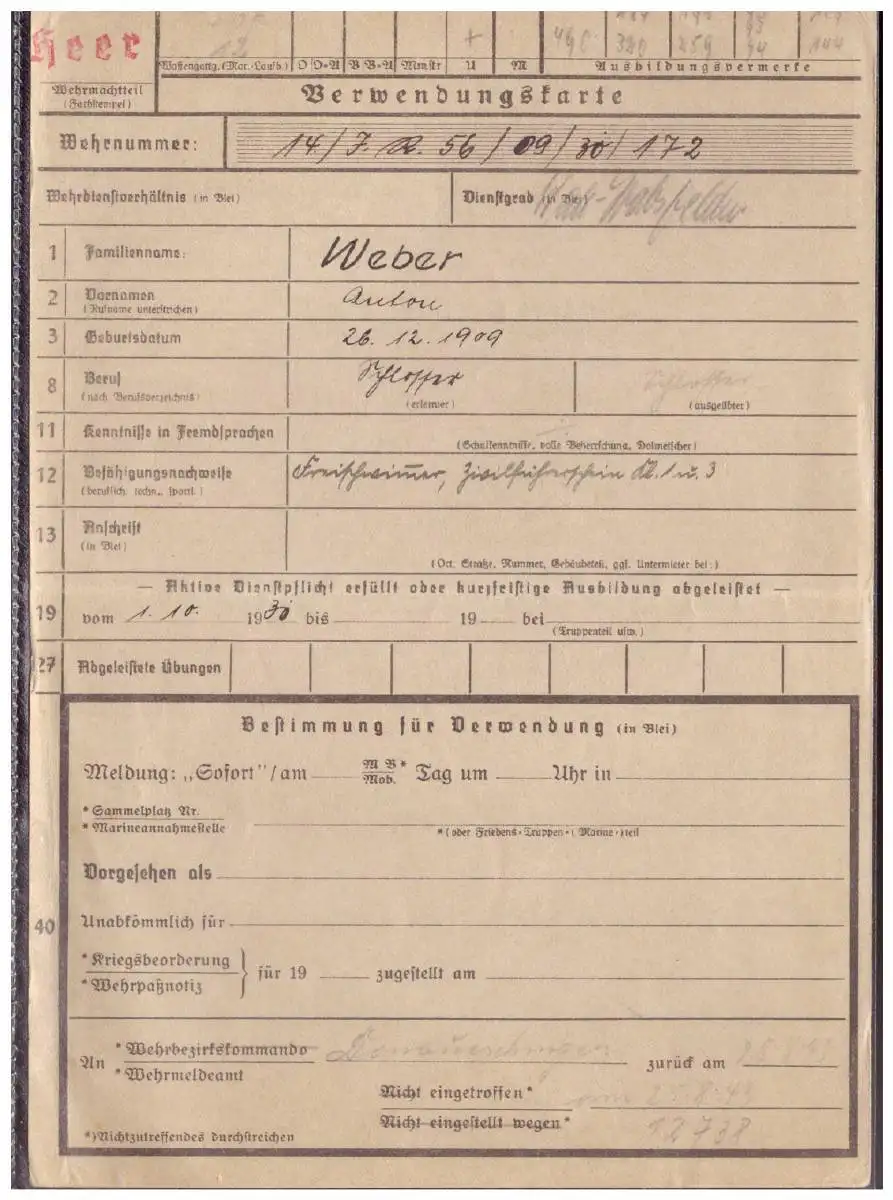 Heer
12
490 320 259 94 144
Waffengattg. (Mar.-Laufb.) O O=A B B=A Monstr U M Ausbildungsvermerke
Wehrmachtteil
(Farbstempel)
Verwendungskarte
Wehrnummer: 14/J.R. 56/09/30/172
Wehrdienstverhältnis (in Blei) Dienstgrad (in Blei)
1 Familienname: Weber
2 Vornamen Anton
(Rufname unterstrichen)
3 Geburtsdatum 26.12.1909
8 Beruf Schlosser Schlosser
(nach Berufsverzeichnis) (erlernter) (ausgeübter)
11 Kenntnisse in Fremdsprachen
(Schulkenntnisse, volle Beherrschung, Dolmetscher)
12 Befähigungsnachweise Freischwimmer, Zivilführerschein Kl. 1 u. 3
(beruflich, techn., sportl.)
13 Anschrift
(in Blei)
(Ort, Straße, Nummer, Gebäudeteil, ggf. Untermieter bei:)
— Aktive Dienstpflicht erfüllt oder kurzfristige Ausbildung abgeleistet —
19 vom 1. 10. 1930 bis 19 bei
(Truppenteil usw.)
27 Abgeleistete Übungen
Bestimmung für Verwendung (in Blei)
Meldung: „Sofort"/am M B* Mob. Tag um Uhr in
* Sammelplatz Nr.
* Marineannahmestelle *(oder Friedens-Truppen-(Marine-)teil
Vorgesehen als
40 Unabkömmlich für
* Kriegsbeorderung
* Wehrpaßnotiz } für 19 zugestellt am
An * Wehrbezirkskommando Donaueschingen zurück am
* Wehrmeldeamt
Nicht eingetroffen* am 25.8.43
Nicht eingestellt wegen* 12738
*) Nichtzutreffendes durchstreichen